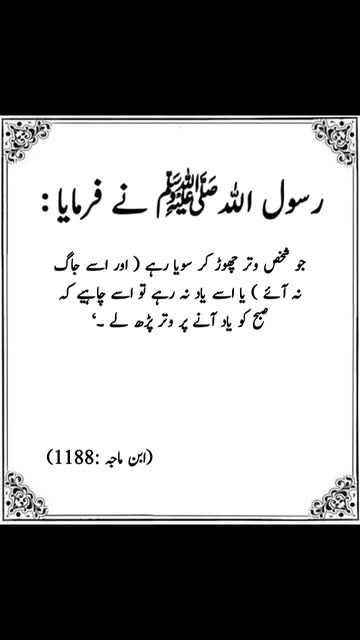 رسول اللہ ﷺ نے فرمایا :
جو شخص وتر چھوڑ کر سویا رہے ( اور اسے جاگ
نہ آئے ) یا اسے یاد نہ رہے تو اسے چاہیے کہ
صبح کو یاد آنے پر وتر پڑھ لے ۔‘
(ابن ماجہ :1188)